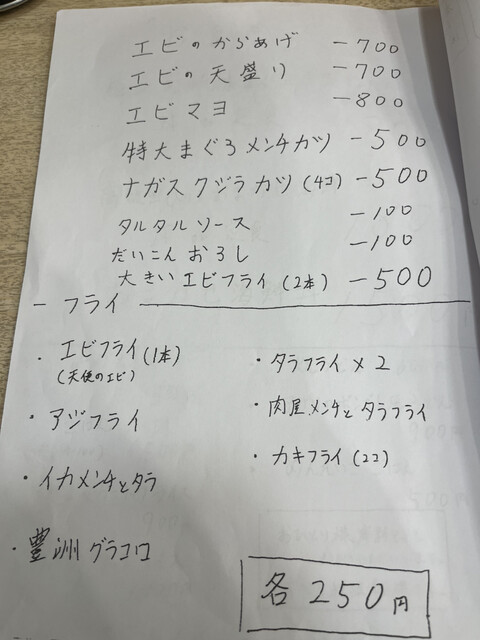 エビのからあげ －700
エビの天盛り －700
エビマヨ －800
特大まぐろメンチカツ －500
ナガスクジラカツ (4コ) －500
タルタルソース －100
だいこんおろし －100
大きいエビフライ (2本) －500
－ フライ
・エビフライ (1本)
(天使のエビ)
・アジフライ
・イカメンチとタラ
・豊洲グラコロ
・タラフライ×2
・肉屋メンチとタラフライ
・カキフライ (2コ)
各250円